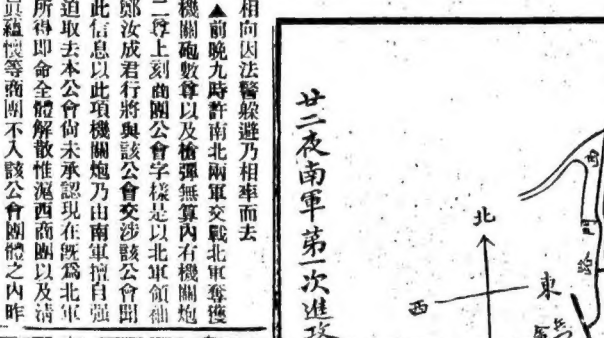 相向因法警躱避乃相率而去
▲前晚九時許南北兩軍交戰北軍奪獲
機關砲數尊以及槍彈無算內有機關炮
二尊上刻商團公會字樣是以北軍領袖
鄭汝成君行將與該公會交涉該公會聞
此信息以此項機關炮乃由南軍擅自强
迫取去本公會尙未承認現在旣爲北軍
所得即命全體解散惟滬西商團以及淸
眞韞懷等商團不入該公會團體之內昨
廿二夜南軍第一次進攻
北
西
東